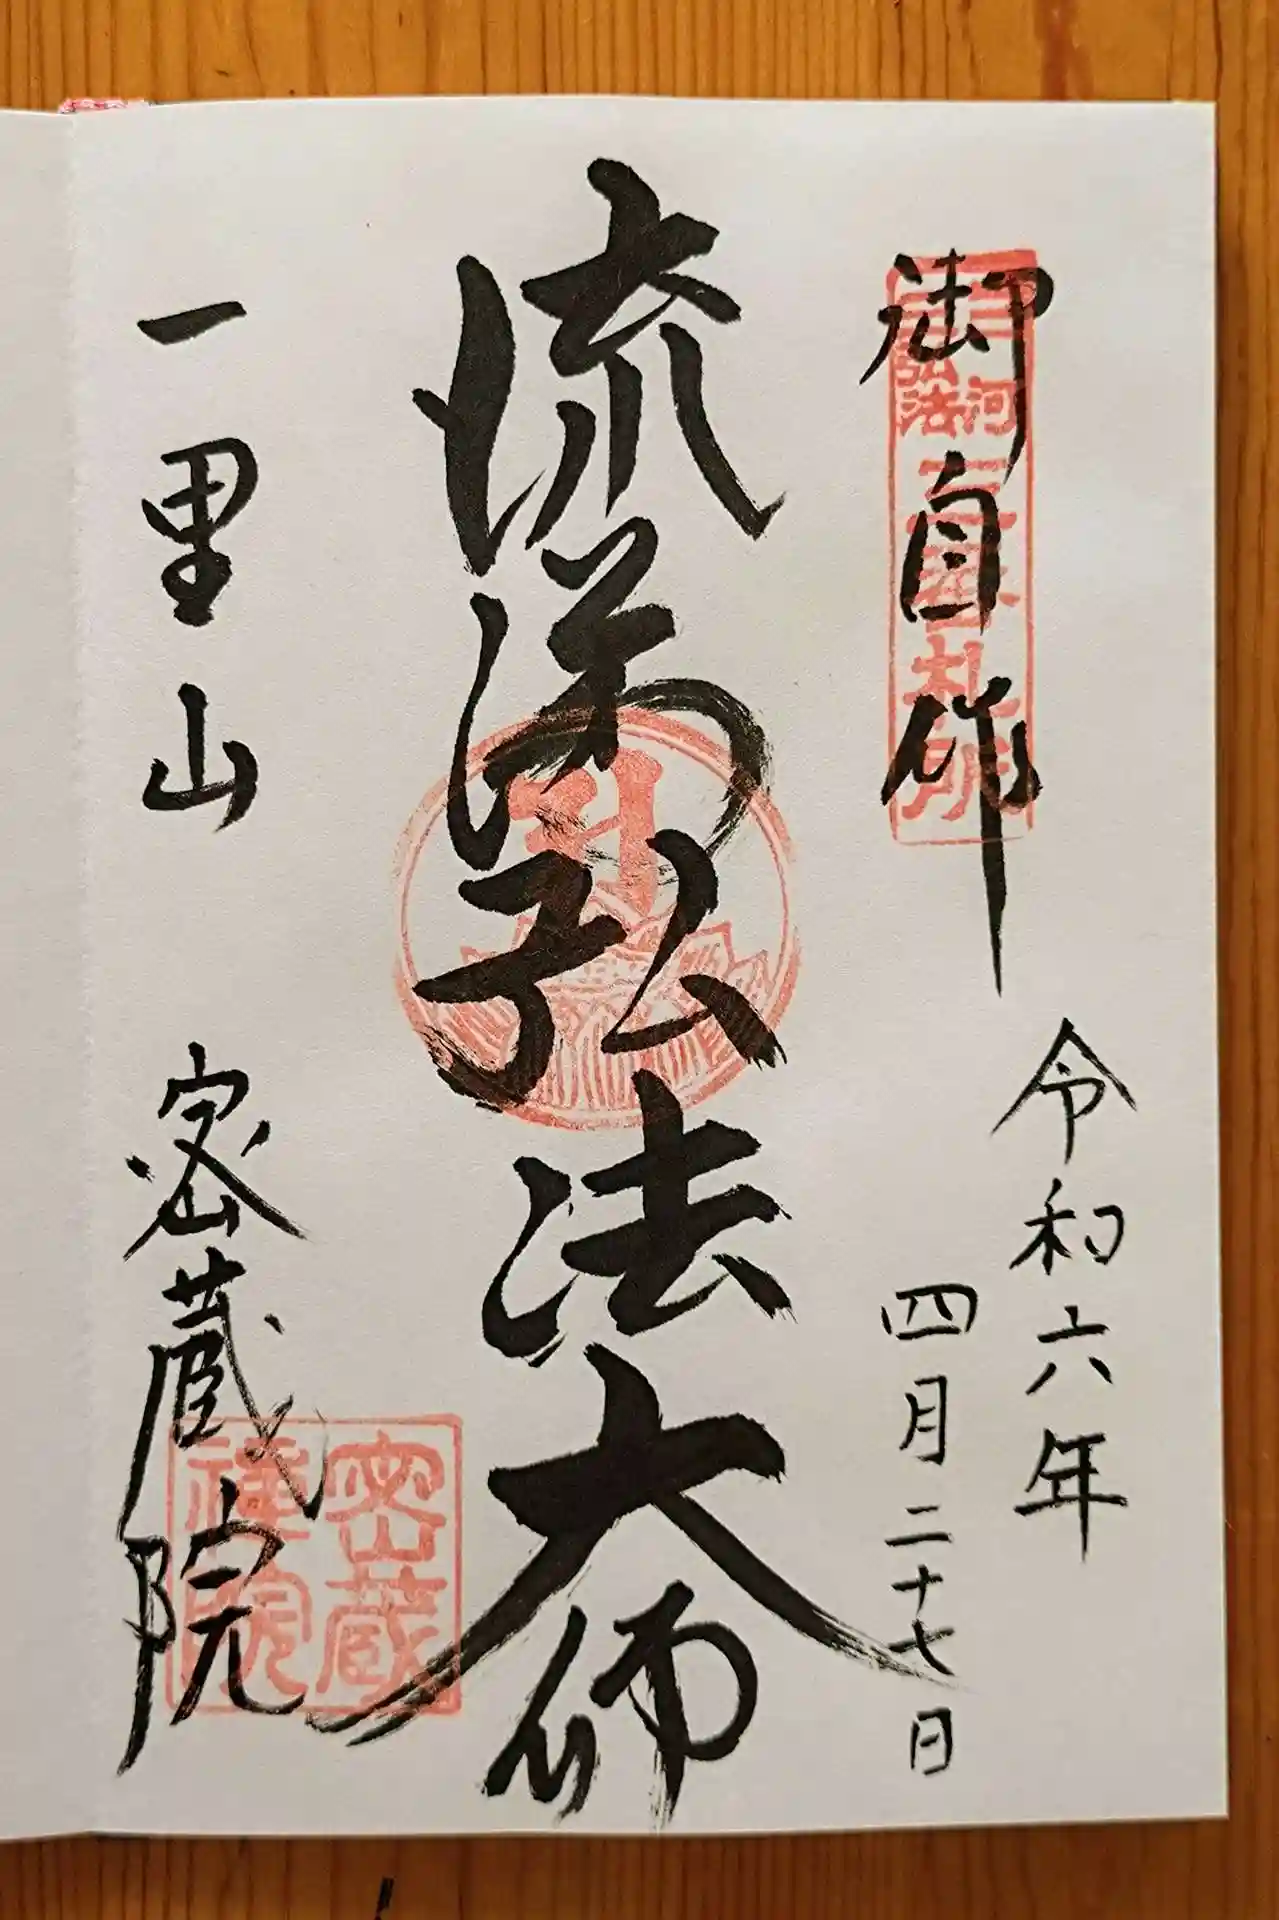 御自作
三河弘法
二番札所
令和六年
四月二十七日
流涕弘法大師
一里山
密蔵院
密蔵禅院